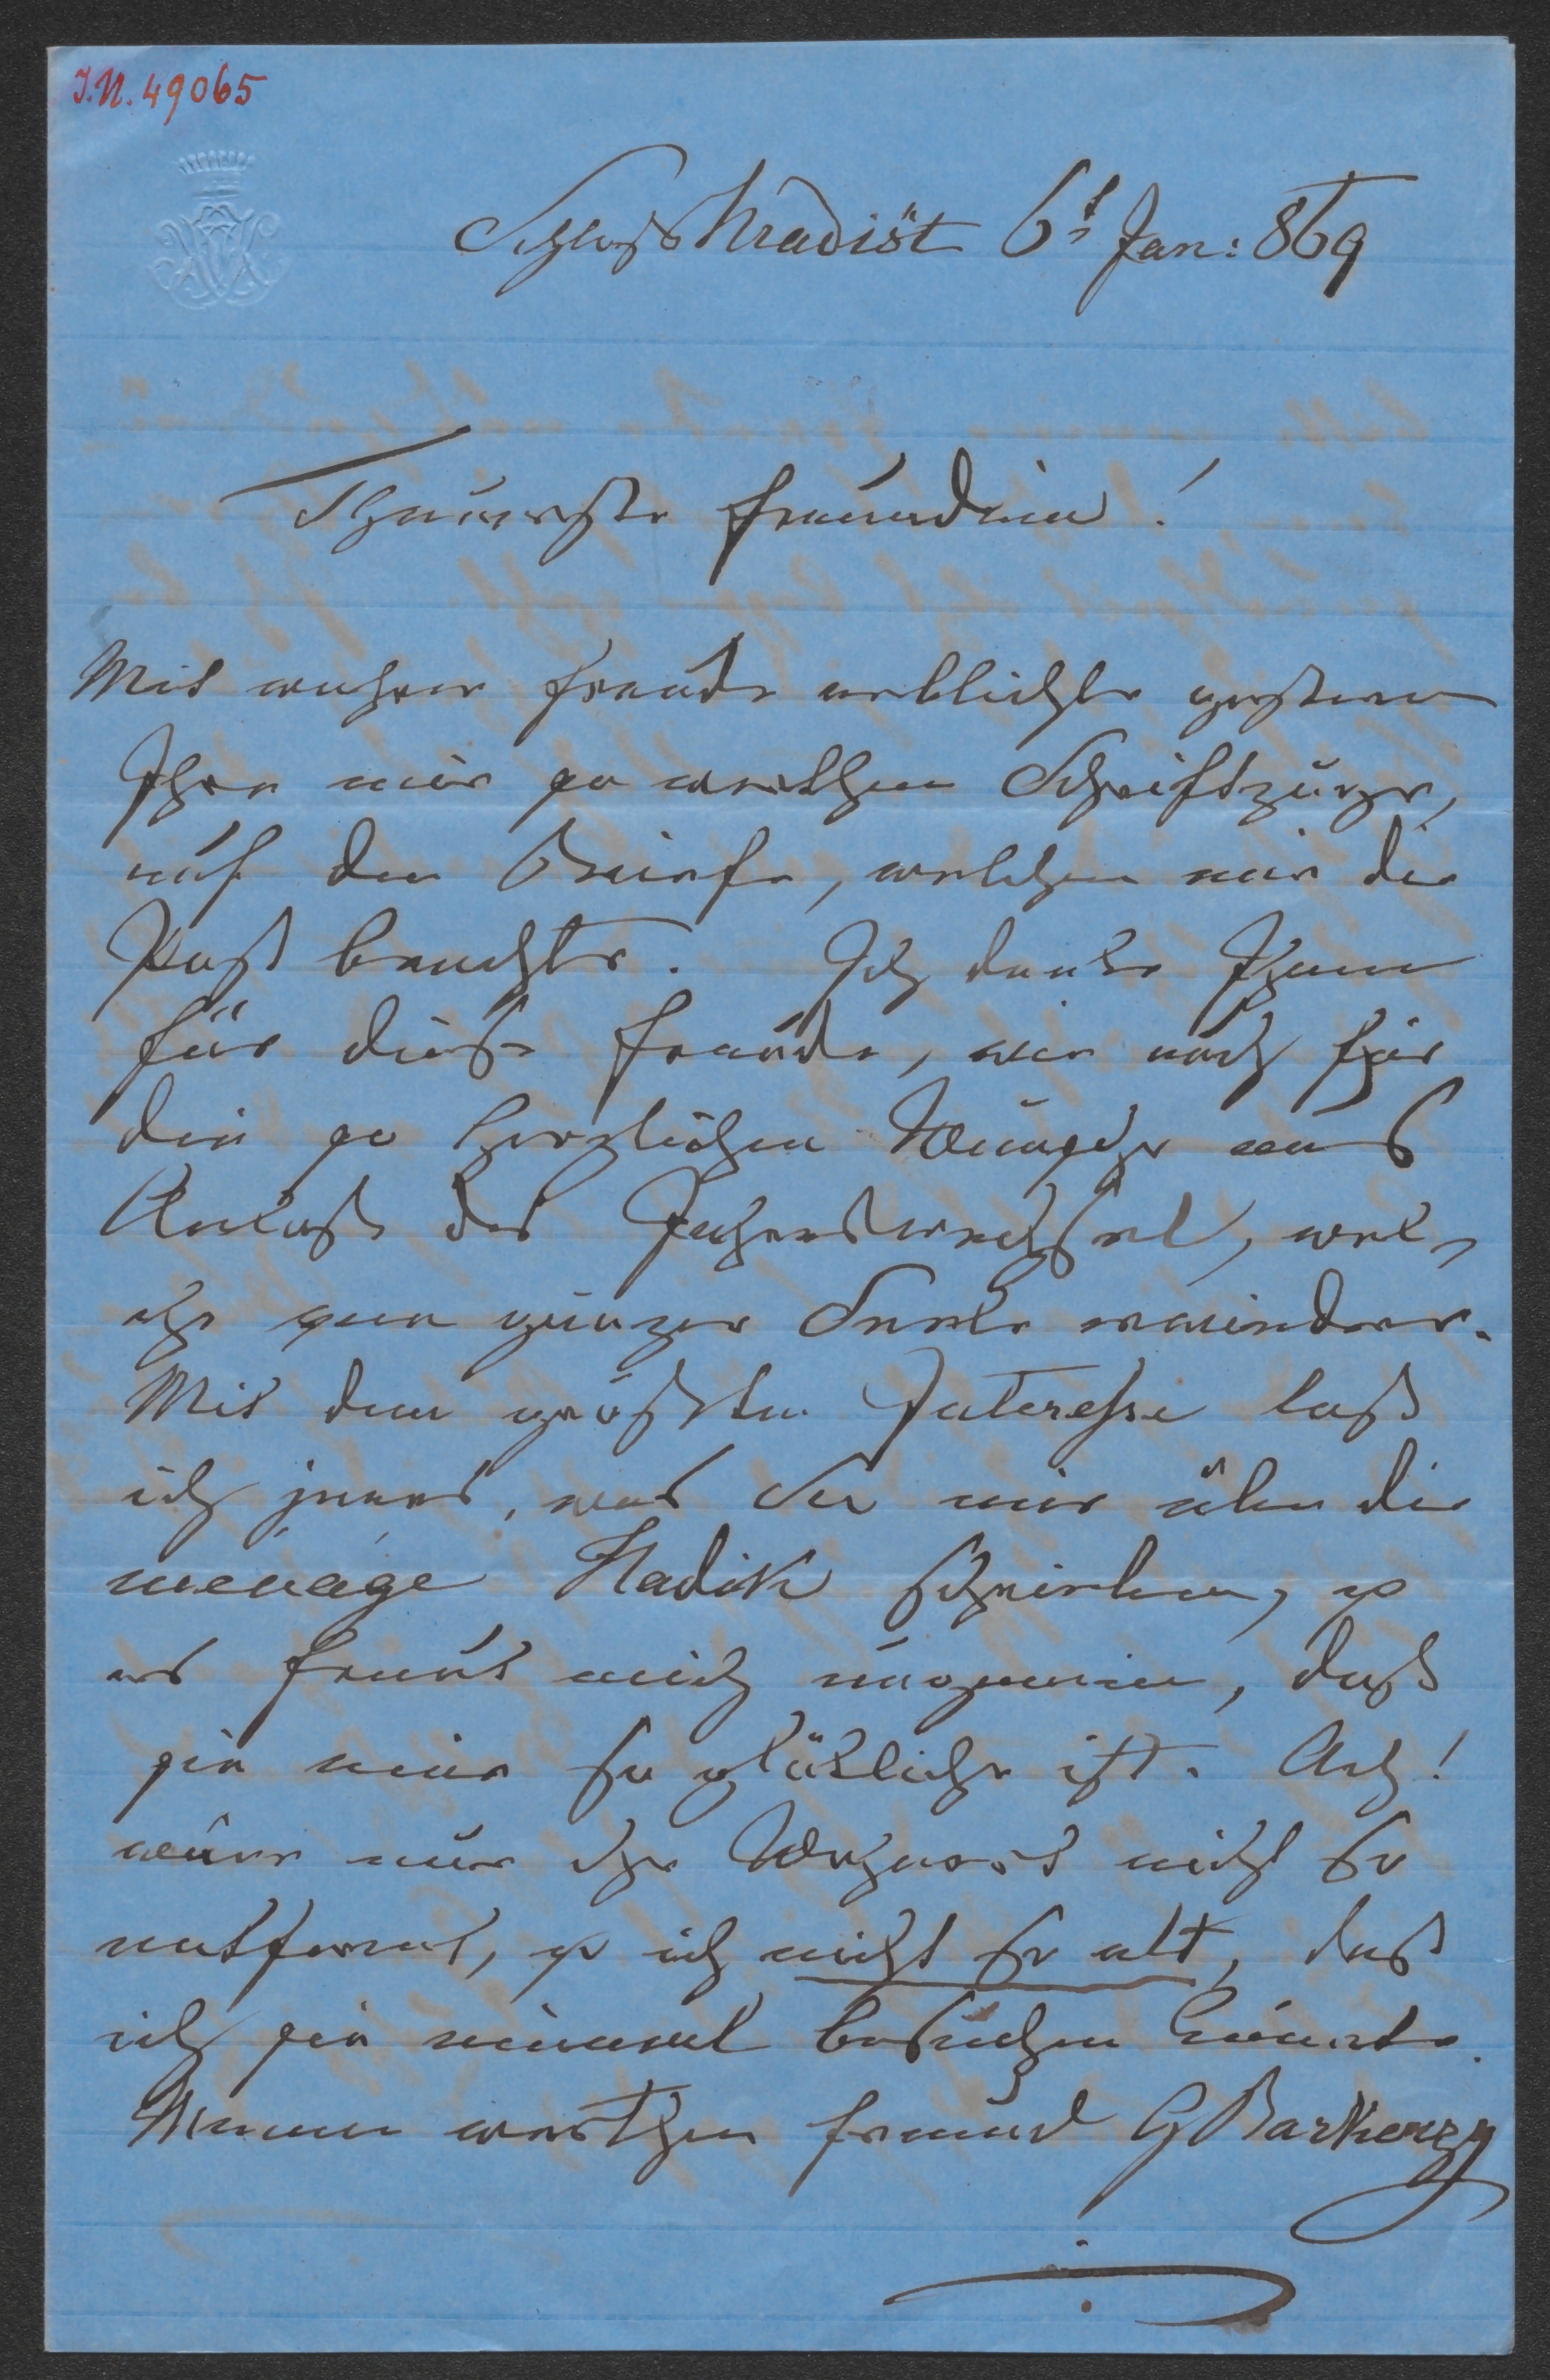 I.N. 49065
Schloß Hradišt 6t Jan: 869
Theuerste Freundin!
Mit wahrer Freude erblickte gestern
Ihre mir so werthen Schriftzüge,
auf dem Briefe, welchen mir die
Post brachte. Ich danke Ihnen
für diese Freude, wie auch für
die so herzlichen Wünsche aus
Anlaß des Jahreswechsel, wel-
che von ganzer Seele erwiedere.
Mit dem größten Interesse laß
ich jenes, was Sie mir über die
menage Hadik schreiben, u
es freut mich ungemein, daß
sie eine so glückliche ist. Ach!
wäre nur ihr Wohnort nicht so
entfernt, u ich nicht so alt, daß
ich sie einmal besuchen könnte.
Meinen werthen Freund G Barkoczy